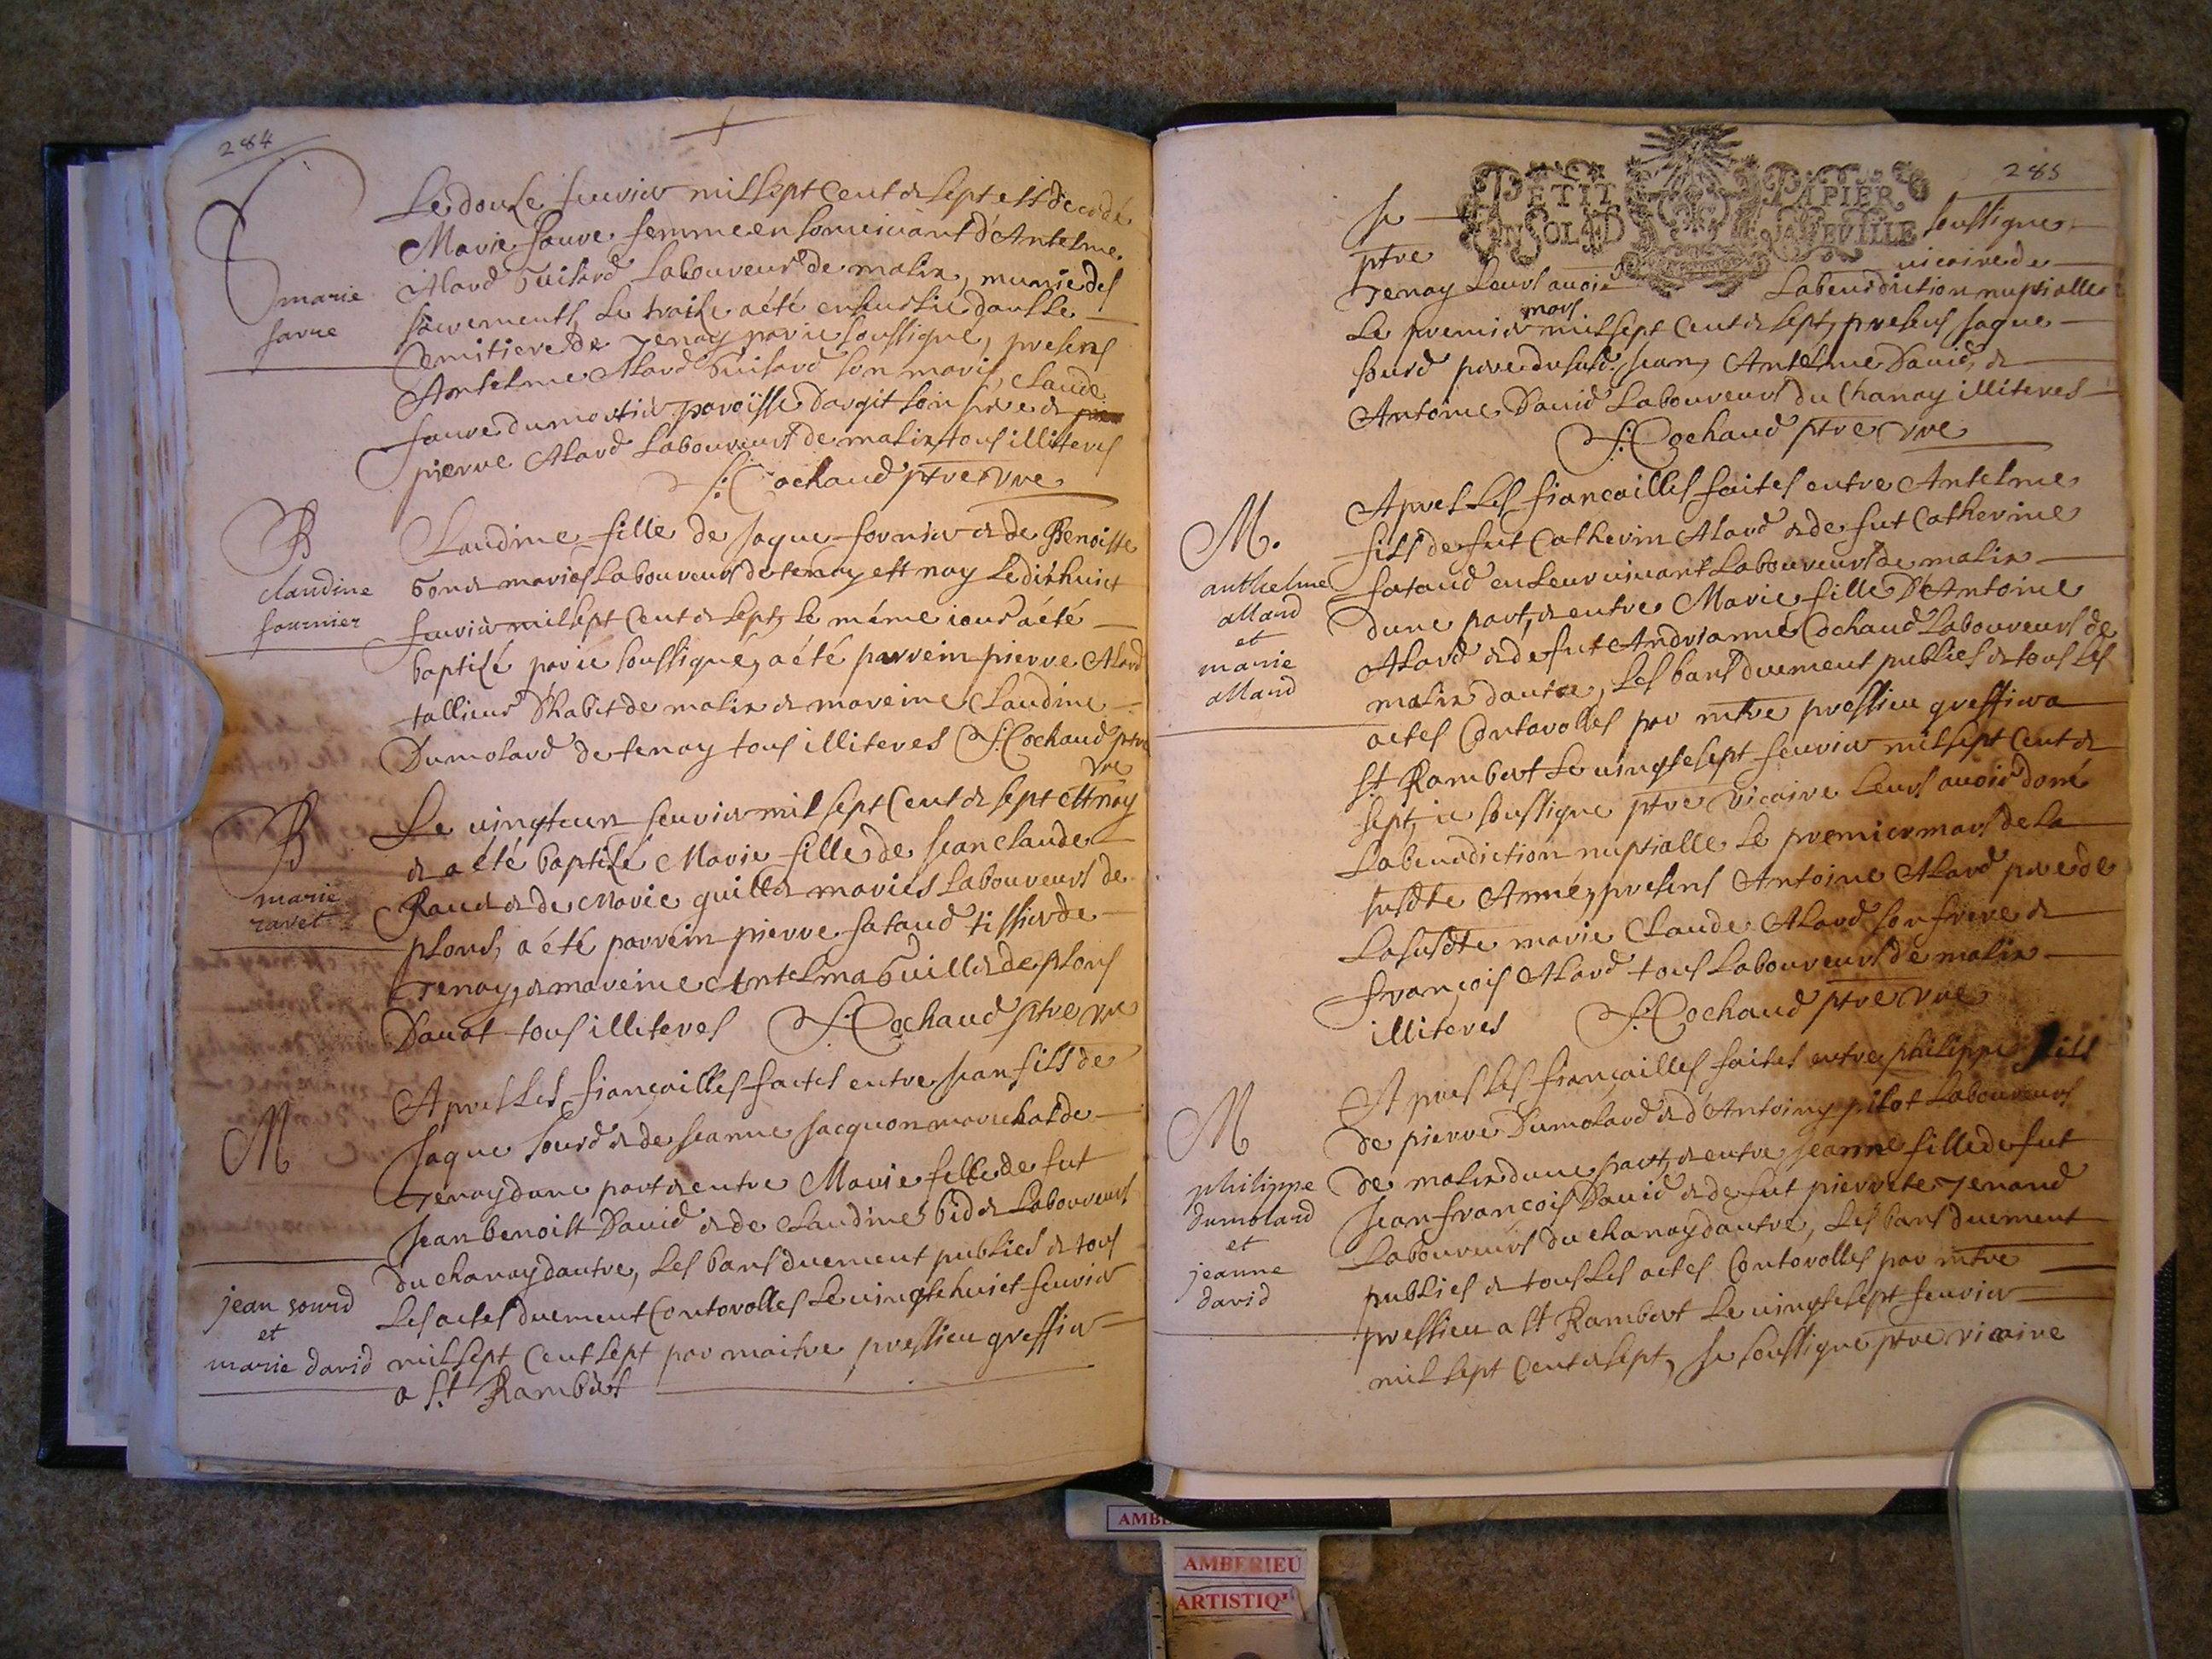 284
Le douze feuvier mil sept Cent et sept est decedé
Marie faure femme en son vivant d'Antelme
Alard Guisard Laboureur de malix, munie des
marie
favre
sacrements, Le traize a été ensevelie dans Le
Cemitiere de Tenay par ie soussigné, presens
Antelme Alard Guisard son mary, Claude
faure du mortier paroisse d'argit son frere et
pierre Alard Laboureurs de malix tous illiteres
f: Cochaud ptre vre
B
claudine
fournier
Claudine fille de Jaque fornier et de Benoitte
Bonet mariés Laboureurs de tenay est nay Le dixhuict
feuvier mil sept Cent et sept, Le même iour a été
baptisé par ie soussigné, a été parrein pierre Alard
tallieur d'habit de malix et mareine Claudine
Dumolard de tenay tous illiteres f: Cochaud ptre
vre
B
marie
ravet
Le vingt un feuvier mil sept Cent et sept est nay
et a été baptisé Marie fille de Jean Claude
Rauet et de Marie guillet mariés Laboureurs de
plons, a été parrein pierre fataud tissier de
Tenay, et mareine Antelma Guillet de plons
Dauat tous illiteres f: Cochaud ptre vre
M
jean sourd
et
marie david
Apres Les fiançailles faites entre Jean fils de
Jaque Sourd et de Jeanne Jacquon marechal de
Tenay dune part et entre Marie fille de fut
Jean benoist Dauid et de Claudine bidet Laboureurs
du chanay dautre, Les bans duement publies et tous
Les actes duement Contorolles Le vingt huict feuvier
mil sept Cent sept par maitre pressieu greffier
a St Rambert
285
PETIT PAPIER
UN SOL LA FEVILLE
Je soussigné
ptre vicaire de
Tenay Leurs avoir La benediction nuptialle
mars
Le premier mil sept Cent et sept, presens Jaque
Sourd pere du susd. Jean, Antelme Dauid, et
Antoine Dauid Laboureurs du Chanay illiteres
f: Cochaud ptre vre
M.
anthelme
allard
et
marie
allard
Apres Les fiançailles faites entre Antelme
fils de fut Catherin Alard et de fut Catherine
fataud en Leur vivant Laboureurs de malix
dune part, et entre Marie fille D'Antoine
Alard et de fut Andrianne Cochaud Laboureurs de
malix dautre, Les bans duement publies et tous Les
actes Contorolles par mtre pressieu greffier a
St Rambert Le vingt sept feuvier mil sept Cent et
sept, ie soussigné ptre vicaire Leurs avoir doné
La benediction nuptialle Le premier mars de La
susdte Anné, presens Antoine Alard pere de
La susdte marie Claude Alard son frere et
françois Alard tous Laboureurs de malix
illiteres f: Cochaud ptre vre
M
philippe
dumolard
et
jeanne
david
Apres Les fiançailles faites entre philippe fils
de pierre Dumolard et d'Antoiny pilot Laboureurs
de malix dune part, et entre jeanne fille de fut
Jean françois Dauid et de fut pierrete Tenand
Laboureurs du chanay dautre, Les bans duement
publies et tous Les actes Contorolles par mtre
pressieu a St Rambert Le vingt sept feuvier
mil sept Cent et sept, Je soussigné ptre vicaire
AMBERIEU
ARTISTIQ